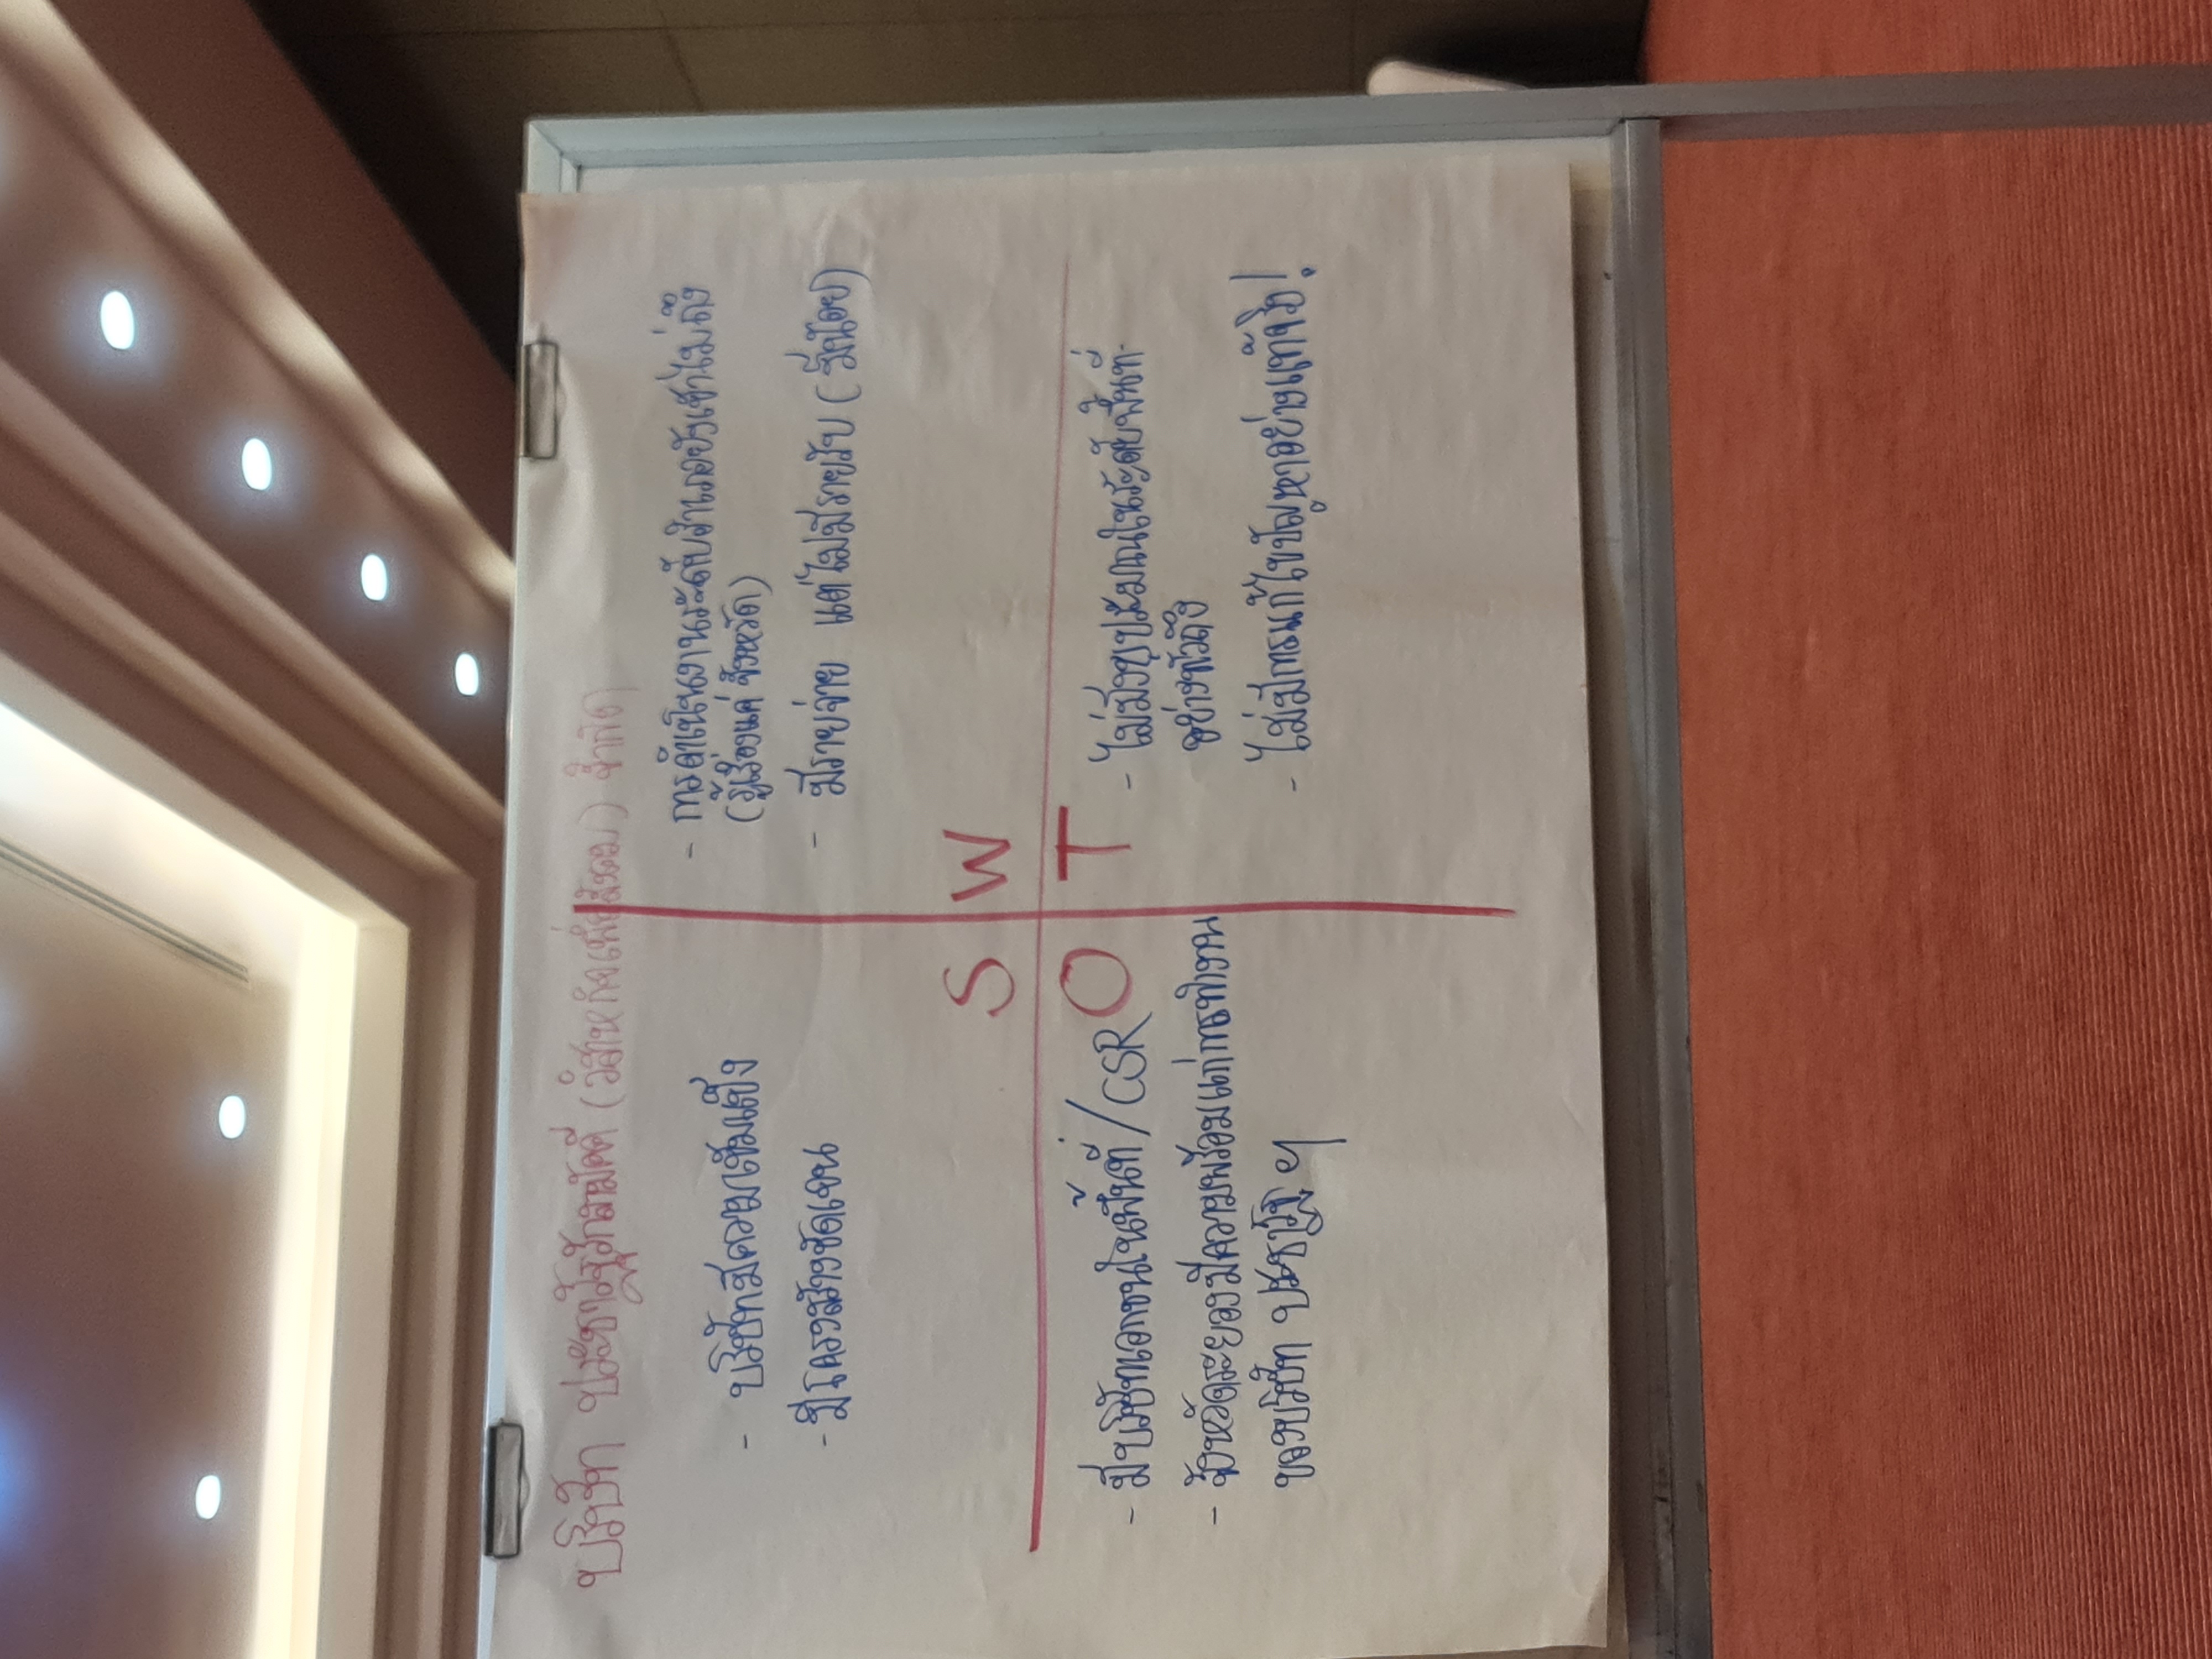 บริษัท ประชารัฐรักสามัคคี (วิสาหกิจเพื่อสังคม) จำกัด
- บริษัทมีความเข้มแข็ง
- มีโครงสร้างชัดเจน
S
- การดำเนินงานระดับอำเภอยังเข้าไม่ถึง
(รู้เรื่องแค่ จังหวัด)
- มีรายจ่าย แต่ไม่มีรายรับ (มีน้อย)
W
O
- มีบริษัทเอกชนในพื้นที่ / CSR
- จังหวัดระยองมีความพร้อมแก่การทำงาน
ของบริษัท ประชารัฐ ฯ
T
- ไม่มีงบประมาณในระดับพื้นที่
อย่างทั่วถึง
- ไม่มีการแก้ไขปัญหาอย่างแท้จริง!